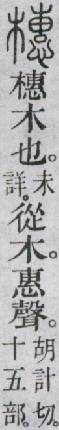 橞
橞木也。未詳。從木。惠聲。胡計切。十五部。